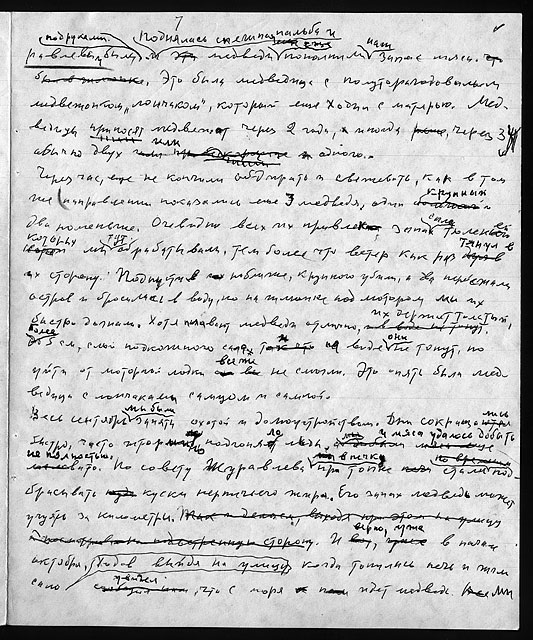 7
подручками. Поднялась спешная пальба и
были медведи пополнили наш запас мяса.
Это была медведица с полуторагодовалым
медвежонком, „лончаком", который еще ходит с матерью. Мед-
ведицы приносят медвежат через 2 года, иногда через 3
обычно двух или одного.
Через час, еще не кончили обдирать и свежевать, как в том
же направлении показались еще 3 медведя, один крупный и
два поменьше. Очевидно всех их привлек запах сала тюленей
которых мы тут обрабатывали, тем более что ветер как раз тянул в
их сторону. Подпустив поближе, крупного убили, а два перебежали
остров и бросились в воду, но на шлюпке под мотором мы их
быстро догнали. Хотя плавают медведи отлично, их держит толстый,
более до 5 см, слой подкожного сала, в воде они не тонут, но
уйти от моторной лодки все же не смогли. Это опять была мед-
ведица с лончаками самцом и самкой.
Весь сентябрь мы были заняты охотой и домоустройством. Дни сокращались
быстро, часто подгоняло льды, и мяса удалось добыть
не полностью. По совету Журавлева мы при топке стали под-
брасывать куски нерпичьего жира. Его запах медведь может
учуять за километры. И верно, уже в начале
октября, Ходов выйдя на улицу когда топилась печь и жгли
сало увидел, что с моря идет медведь. Мы